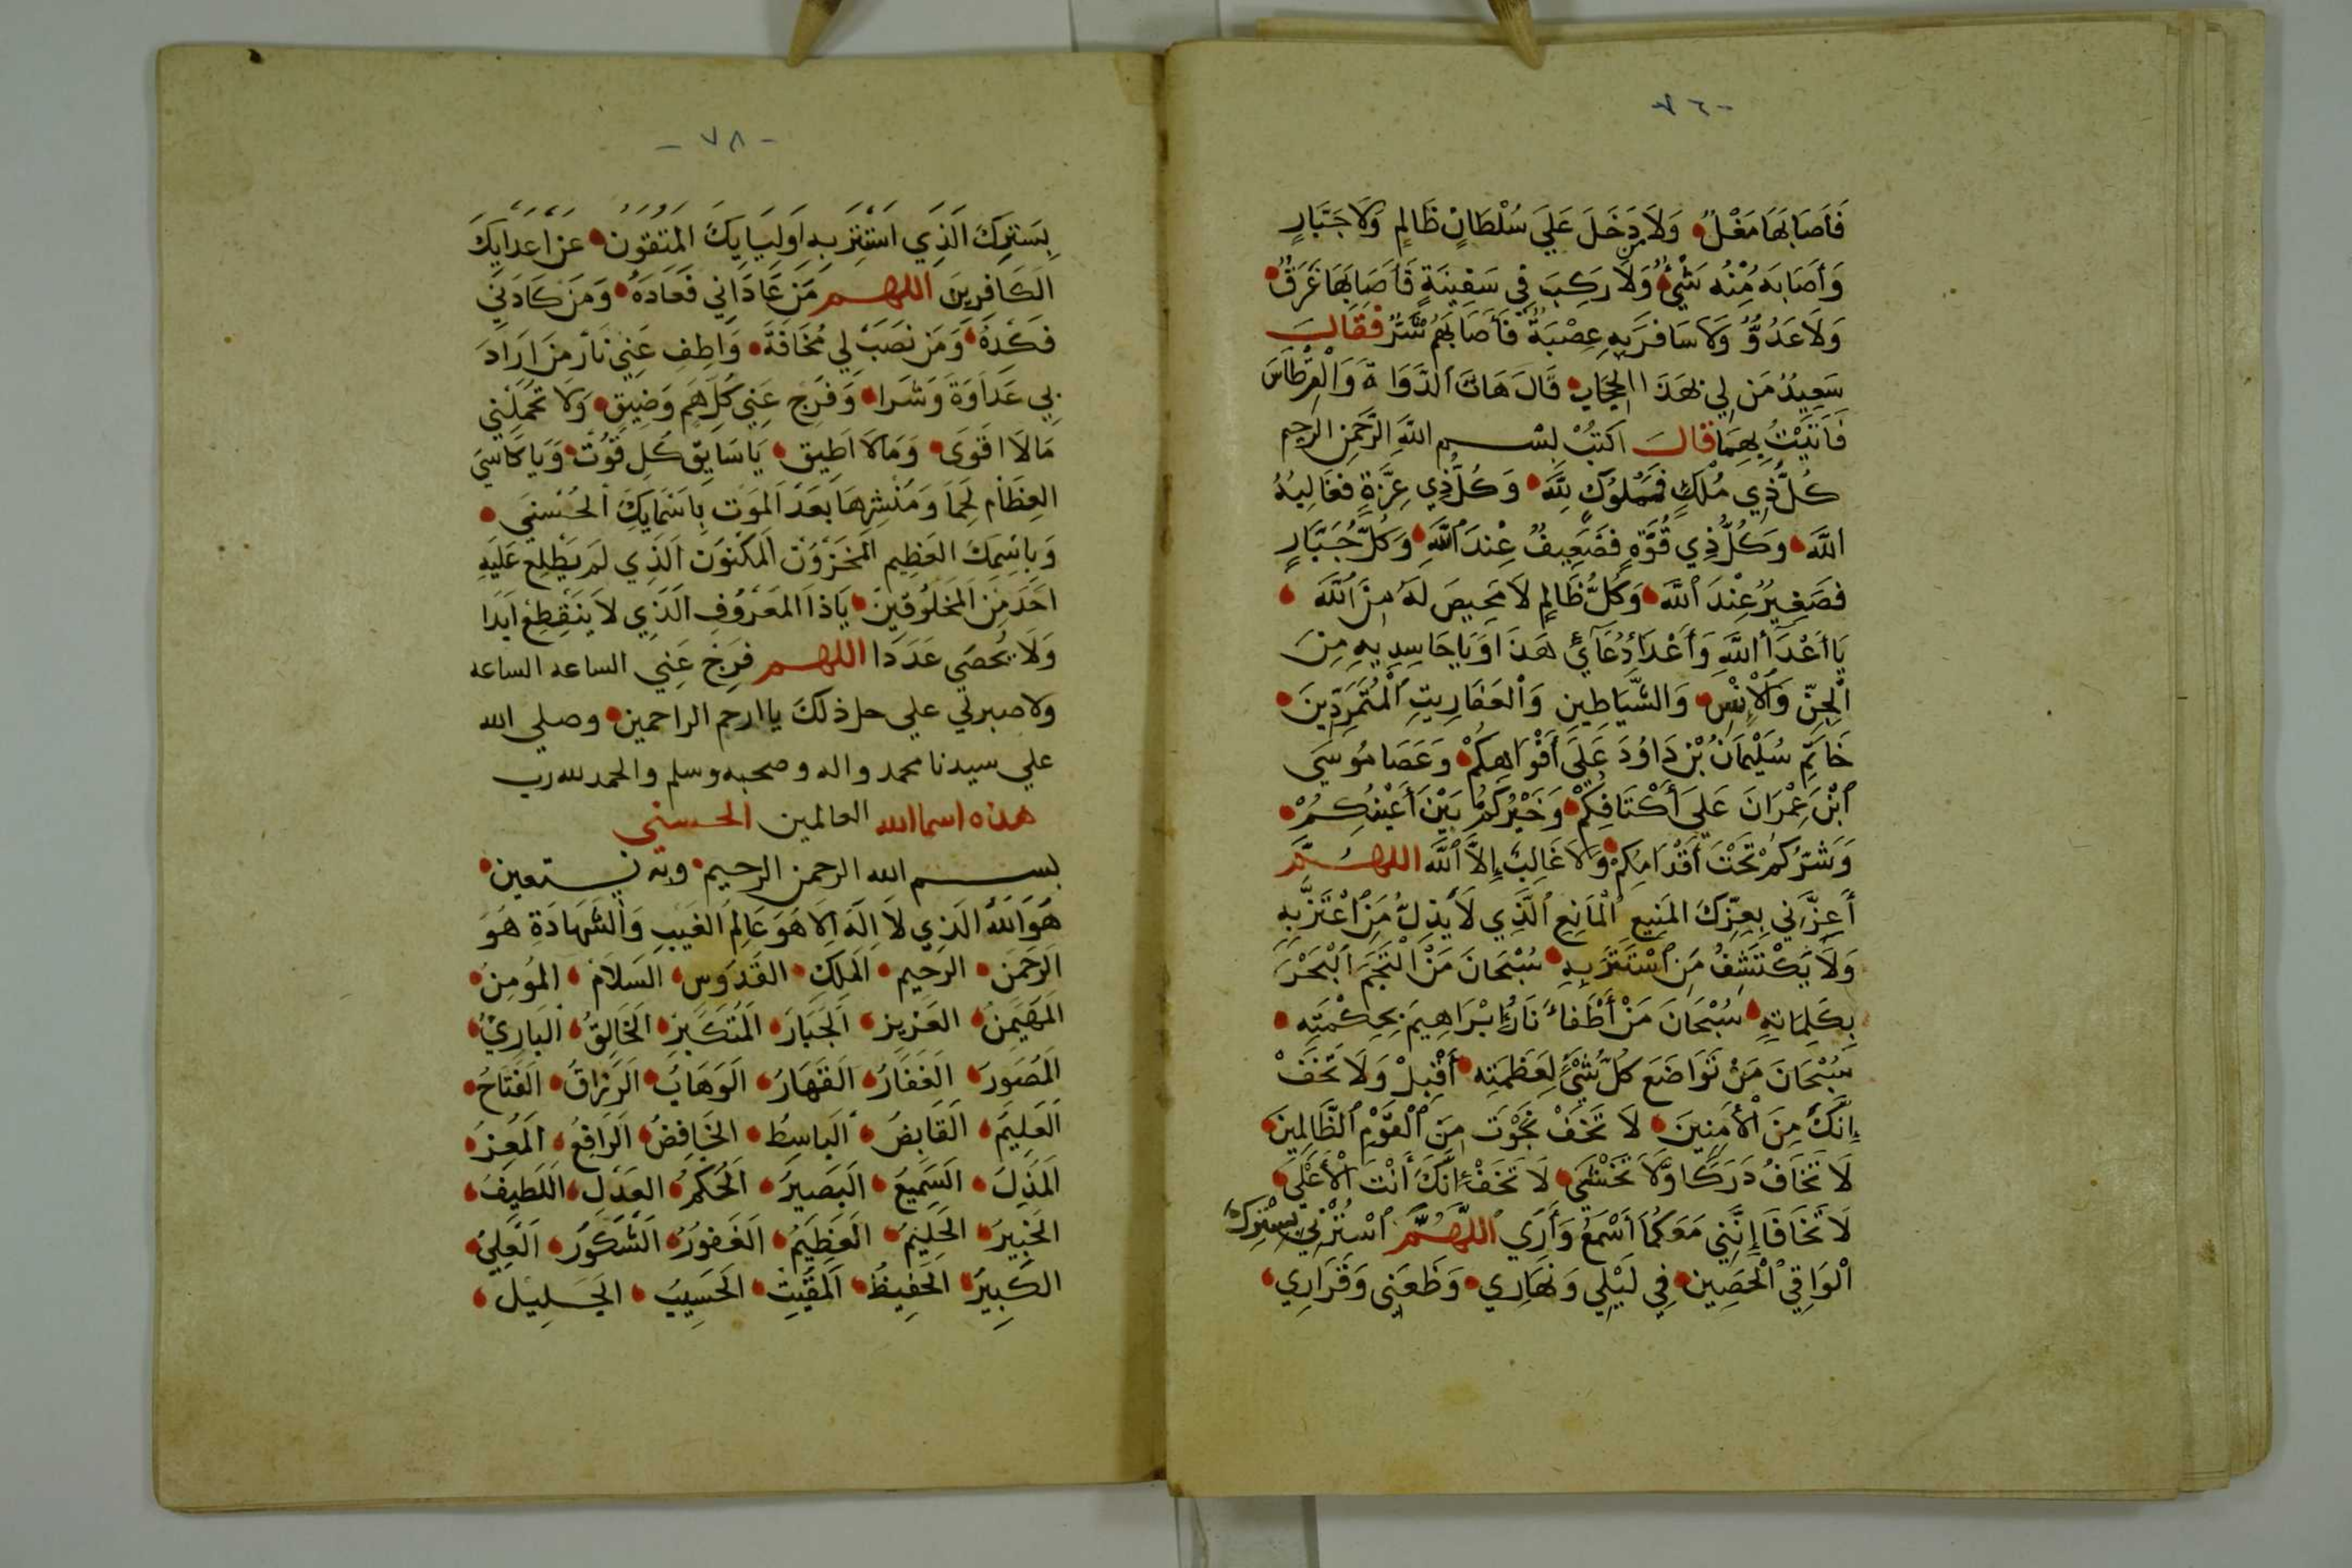 فَأَصَابَهَا مَغْلٌ وَلَا دَخَلَ عَلَى سُلْطَانٍ ظَالِمٍ وَلَا جَبَّارٍ
وَأَصَابَهُ مِنْهُ شَيْءٌ وَلَا رَكِبَ فِي سَفِينَةٍ فَأَصَابَهَا غَرَقٌ
وَلَا عَدُوٌّ وَلَا سَافَرَ بِهِ عِصْبَةٌ فَأَصَابَهُمْ شَرٌّ فَقَالَ
سَعِيدٌ مَن لِي بِهَذَا الحِجَابِ قَالَ هَاتَ الدَّوَاةَ وَالْقِرْطَاسَ
فَأَتَيْتُ بِهِمَا قَالَ اكْتُبْ بِسْمِ اللَّهِ الرَّحْمَنِ الرَّحِيمِ
كُلُّ ذِي مُلْكٍ فَمَمْلُوكٍ لِلَّهِ وَكُلُّ ذِي عِزَّةٍ فَغَالِبُهُ
اللَّهُ وَكُلُّ ذِي قُوَّةٍ فَضَعِيفٌ عِنْدَ اللَّهِ وَكُلُّ جَبَّارٍ
فَصَغِيرٌ عِنْدَ اللَّهِ وَكُلُّ ظَالِمٍ لَا مَحِيصَ لَهُ مِنَ اللَّهِ
يَا أَعْدَآءَ اللَّهِ وَأَعْدَاءَ دُعَآئِي هَذَا وَيَا حَاسِدِيهِ مِنَ
الْجِنِّ وَالْإِنْسِ وَالشَّيَاطِينِ وَالْعَفَارِيتِ الْمُتَمَرِّدِينَ
خَاتَمِ سُلَيْمَانُ بْنِ دَاوُدَ عَلَى أَفْوَاهِكُمْ وَعَصَا مُوسَى
ابْنَ عِمْرَانَ عَلَى أَكْتَافِكُمْ وَخَيْرُكُمْ بَيْنَ أَعْيُنِكُمْ
وَشَرُّكُمْ تَحْتَ أَقْدَامِكُمْ وَلَا غَالِبَ إِلَّا اللَّهُ اللَّهُمَّ
أَعِزَّنِي بِعِزِّكَ المَنِيعِ الْمَانِعِ الَّذِي لَا يَذِلُّ مَنِ اعْتَزَّ بِهِ
وَلَا يَكْتَشِفُ مَنِ اسْتَتَرَ بِهِ سُبْحَانَ مَنْ أَلْجَمَ الْبَحْرَ
بِكَلِمَاتِهِ سُبْحَانَ مَنْ أَطْفَاءَ نَارَ إِبْرَاهِيمَ بِحِكْمَتِهِ
سُبْحَانَ مَنْ تَوَاضَعَ كُلُّ شَيْءٍ لِعَظَمَتِهِ أَقْبِلْ وَلَا تَخَفْ
إِنَّكَ مِنَ الْآمِنِينَ لَا تَخَفْ نَجَوْتَ مِنَ الْقَوْمِ الظَّالِمِينَ
لَا تَخَافُ دَرَكًا وَلَا تَخْشَى لَا تَخَفْ إِنَّكَ أَنْتَ الْأَعْلَى
لَا تَخَافَا إِنَّنِي مَعَكُمَا أَسْمَعُ وَأَرَى اللَّهُمَّ اسْتُرْنِي بِسِتْرِكَ
الْوَاقِي الْحَصِينِ فِي لَيْلِي وَنَهَارِي وَظَعَنِي وَقَرَارِي
- ٧٨ -
بِسَتْرِكَ الَّذِي اسْتَتَرَ بِهِ أَوْلِيَايِكَ المُتَّقُونَ عَنْ أَعْدَايِكَ
الكَافِرِينَ اللهم مَن عَادَانِي فَعَادِهِ وَمَن كَادَنِي
فَكِدْهُ وَمَن نَصَبَ لِي مُخَافَةً وَاطِفِ عَنِّي نَارَ مَن أَرَادَ
بِي عَدَاوَةَ وَشَرًا وَفَرِّجْ عَنِّي كُلَّ هَمٍ وَضِيقٍ وَلَا تُحَمِّلْنِي
مَا لَا اقْوَى وَمَا لَا اطِيقُ يَا سَابِقَ كُلِّ قَوْتٍ وَيَا كَاسِيَ
العِظَامِ لَحْمًا وَمُنْشِرِهَا بَعْدَ المَوْتِ بِاسْمَايِكَ الحُسْنَى
وَبِاسْمِكَ العَظِيمِ المَخْزُونِ المَكْنُونِ الَّذِي لَمْ يَطَّلِعْ عَلَيْهِ
احَدٌ مِنَ المَخْلُوقِينَ يَا ذَا المَعْرُوفِ الَّذِي لَا يَنْقَطِعُ ابَدًا
وَلَا يُحْصَى عَدَدًا اللهم فَرِّجْ عَنِّي الساعه الساعه
ولا صبرلي علي حلذلك يا ارحم الراحمين وصلي الله
علي سيدنا محمد واله وصحبه وسلم والحمد لله رب
هذه اسما الله العالمين الحسني
بسم الله الرحمن الرحيم وبه نستعين
هُوَ اللهُ الَّذِي لَا إِلَهَ إِلَّا هُوَ عَالِمُ الغَيْبِ وَالشَّهَادَةِ هُوَ
الرَحْمَن الرَحِيم المَلِك القَدُوس السَلَام المُؤمِن
المُهَيْمِن العَزِيز الجَبَار المُتَكَبِر الخَالِق البَارِئُ
المُصَوِر الغَفَار القَهَار الوَهَاب الرَزاق الفَتَاح
العَلِيم القَابِض البَاسِط الخَافِض الرَافِع المُعِز
المُذِل السَمِيع البَصِير الحَكَم العَدْل اللَطِيف
الخَبِير الحَلِيم العَظِيم الغَفُور الشَكُور العَلِي
الكَبِير الحَفِيظ المُقِيت الحَسِيب الجَلِيل